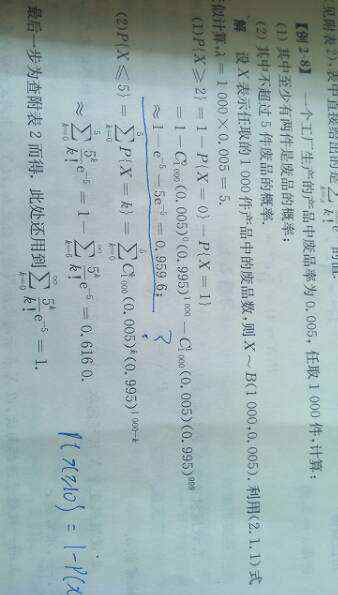 见附表2),表中直接给出的是
【例2-8】 一个工厂生产的产品中废品率为0.005,任取1 000件,计算:
(1) 其中至少有两件是废品的概率;
(2) 其中不超过5件废品的概率.
解 设X表示任取的1 000件产品中的废品数,则X~B(1 000,0.005). 利用(2.1.1)式
似计算,λ=1 000×0.005=5.
(1) P{X≥2}=1-P{X=0}-P{X=1}
=1-C⁰₁₀₀₀(0.005)⁰(0.995)¹⁰⁰⁰-C¹₁₀₀₀(0.005)(0.995)⁹⁹⁹
≈1-e⁻⁵-5e⁻⁵=0.959 6; ?
(2) P{X≤5}=∑⁵ₖ₌₀P{X=k}=∑⁵ₖ₌₀Cᵏ₁₀₀₀(0.005)ᵏ(0.995)¹⁰⁰⁰⁻ᵏ
≈∑⁵ₖ₌₀ 5ᵏ/k! e⁻⁵=1-∑^∞ₖ₌₆ 5ᵏ/k! e⁻⁵=0.616 0.
最后一步为查附表2而得. 此处还用到∑^∞ₖ₌₀ 5ᵏ/k! e⁻⁵=1.
P(x≤10)=1-P(x